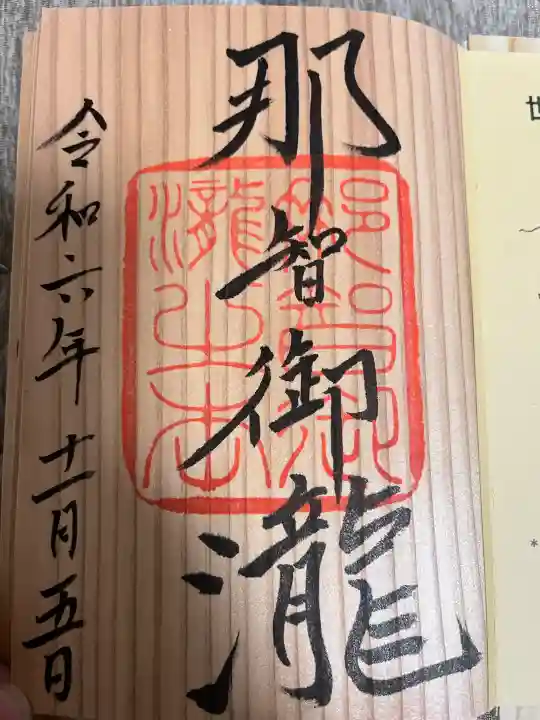 那智御瀧
令和六年十一月五日
世
*